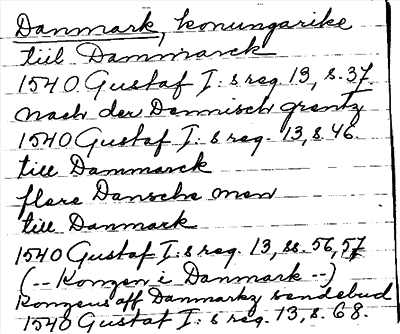 Danmark, konungarike
till Dammarck
1540 Gustaf I:s reg. 13, s. 37
nach der Dennisch grentz
1540 Gustaf I:s reg. 13, s. 46.
till Dammarck
flere Dansche men
till Danmark
1540 Gustaf I:s reg. 13, ss. 56, 57
(-- Konzen i Danmark --)
Konzens aff Danmarkz sendebud
1540 Gustaf I:s reg. 13, s. 68.